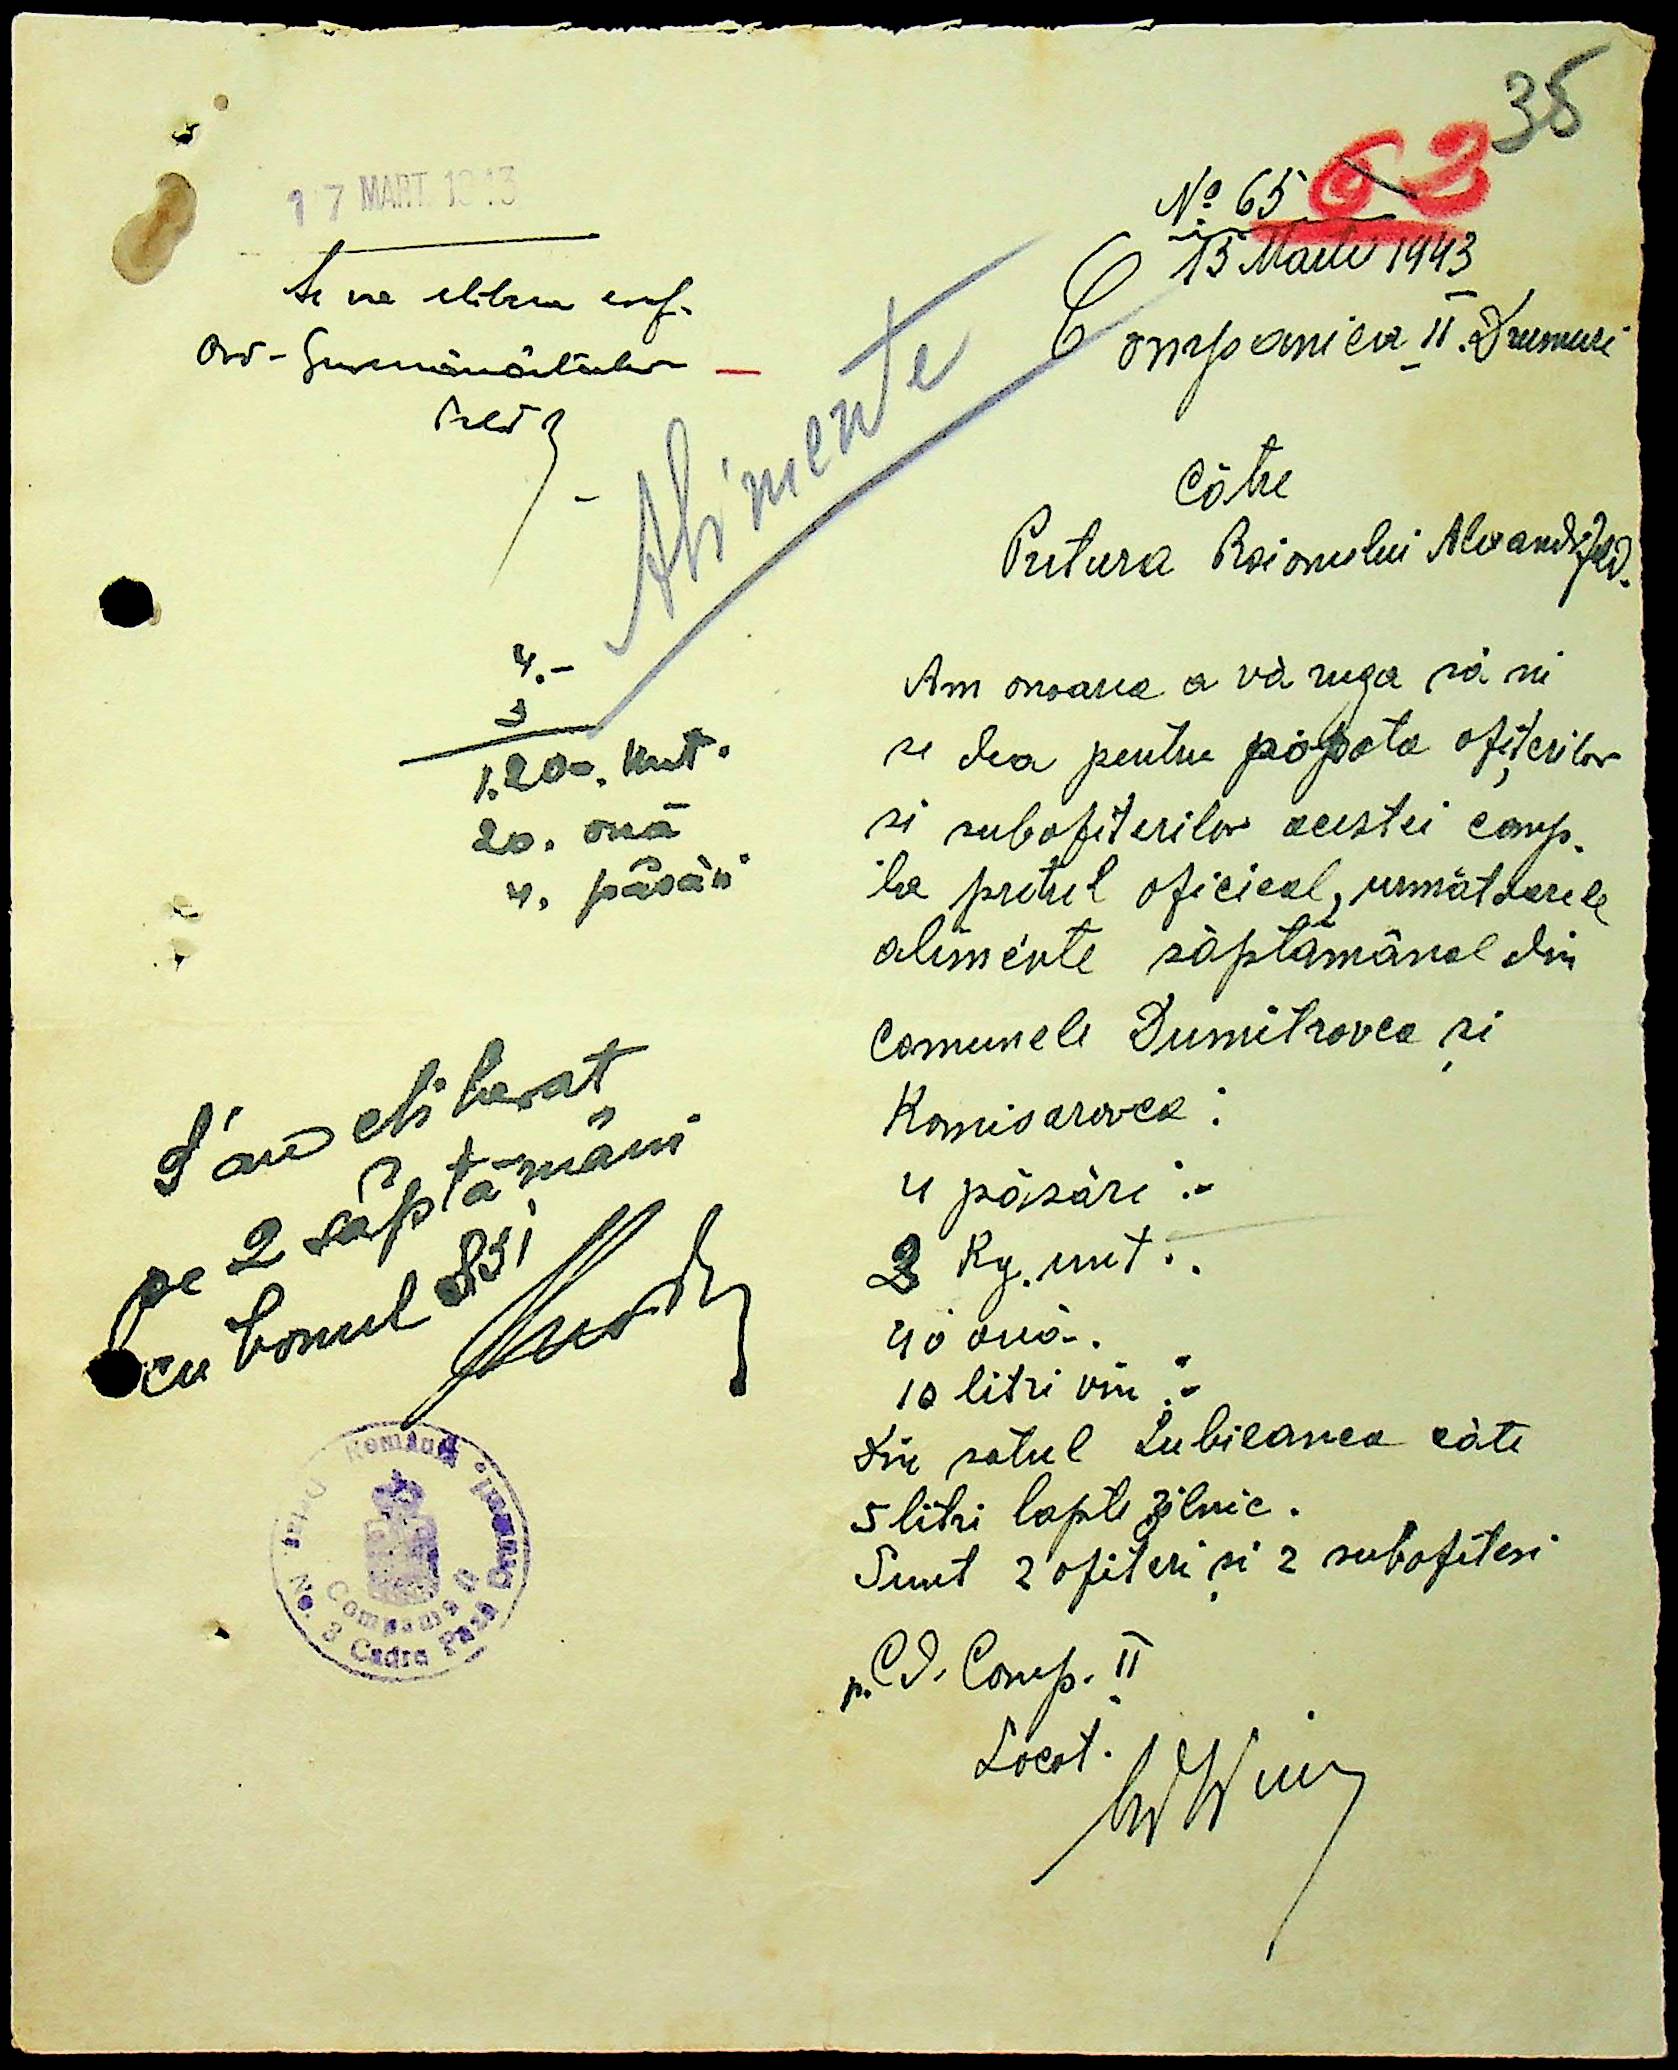 38
63
17 MART. 1943
No 65
15 Martie 1943
Compania II. Drumuri
Către
Pretura Raionului Alexandrfeld.
Alimente
Se va elibera conf.
Ord- Guvernământului
4.-
3
1.200. unt.
20. ouă
4. păsări
Am onoarea a vă ruga să ni
se dea pentru popota ofițerilor
si subofiterilor acestei comp.
la prețul oficial, următoarele
alimente săptămânal din
comunele Dumitrovca și
Komisarovca :
4 păsări :-
2 Kg. unt :.
40 ouă.
10 litri vin :-
Din satul Lubieanca câte
5 litri lapte zilnic.
Sunt 2 ofiteri și 2 subofiteri
p. Cd. Comp. II
Locot.
S'au eliberat
pe 2 săptămâni
cu bonul 831
Detaș. Română
No. 3 Cadre Pază Drumuri.
Compania II